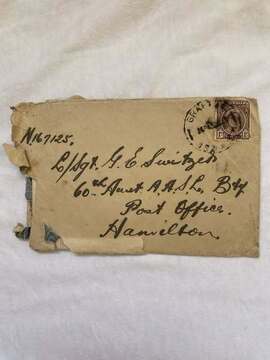 N167125.
L/Sgt. G E Switzer
60th Aust A.A.S.L. Bty
Post Office.
Hamilton.